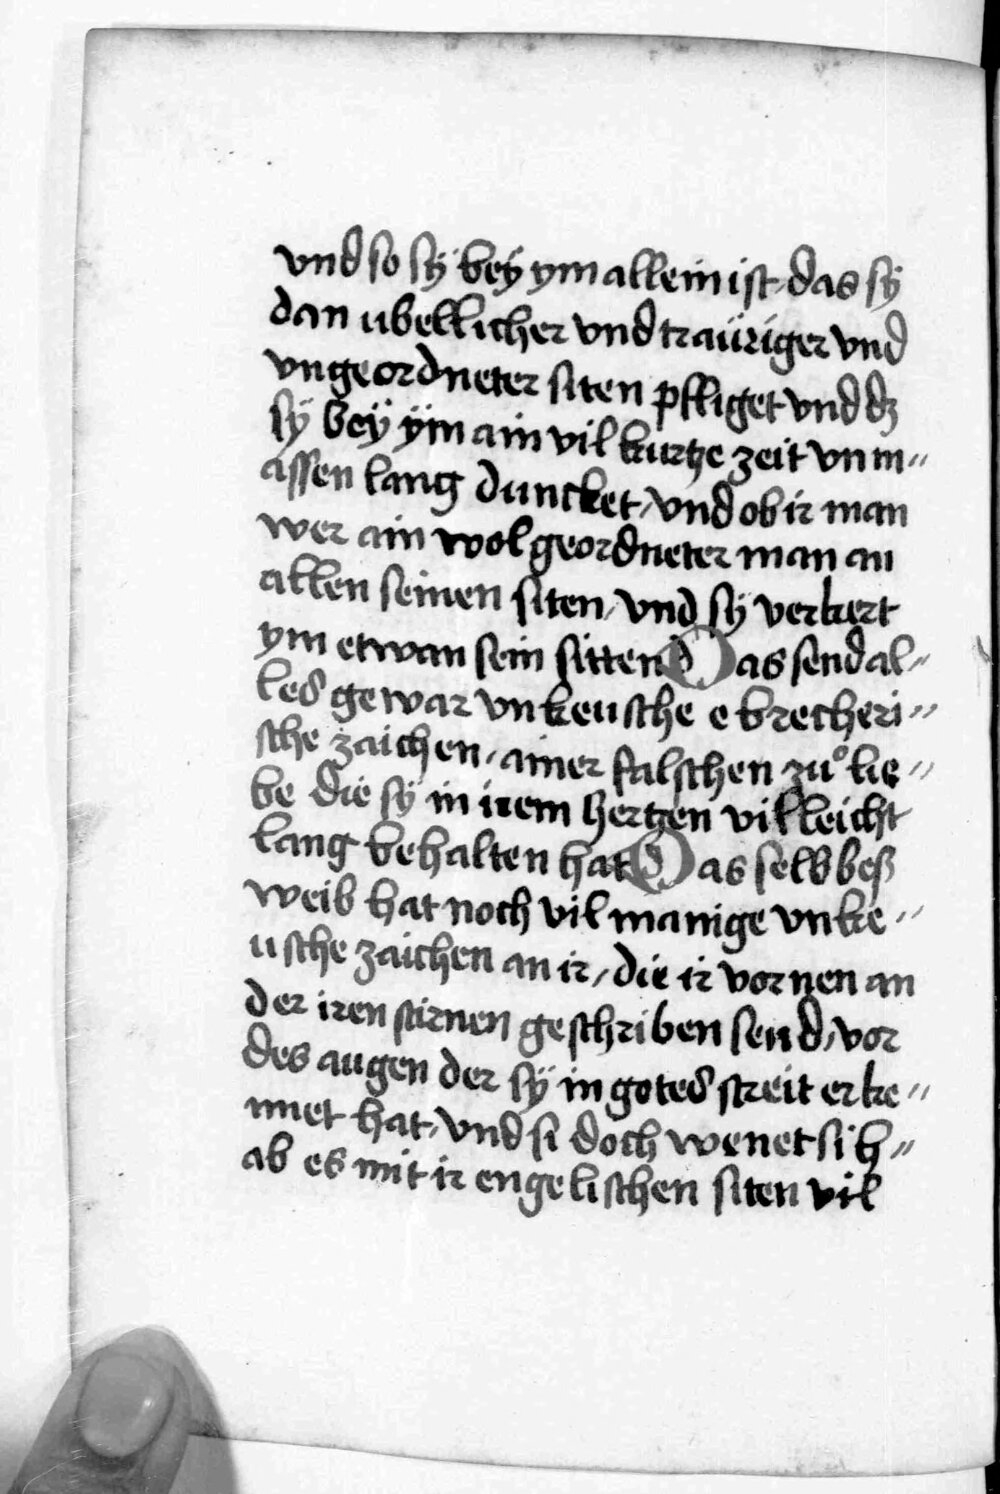 vnd so sÿ beÿ ym allein ist das sÿ
dan ubellicher vnd traüriger vnd
vngeordneter siten pfliget vnd dz
sÿ beÿ ÿm ain vil kurtze zeit vnm〃
assen lang duncket / vnd ob ir man
wer ain wol geordneter man an
allen seinen siten / vnd sÿ verkert
ym etwan sein sitten Das send al〃
les gewar vnkeusche ebrecheri〃
sche zaichen / ainer falschen zuͦ lie〃
be die sÿ in irem hertzen villeicht
lang behalten hat Das selb beß
weib hat noch vil manige vnke〃
usche zaichen an ir / die ir vornen an
der iren stirnen geschriben send / vor
des augen der sÿ in gotes streit erke〃
nnet hat / vnd si doch wenet si h〃
ab es mit ir engelischen siten vil